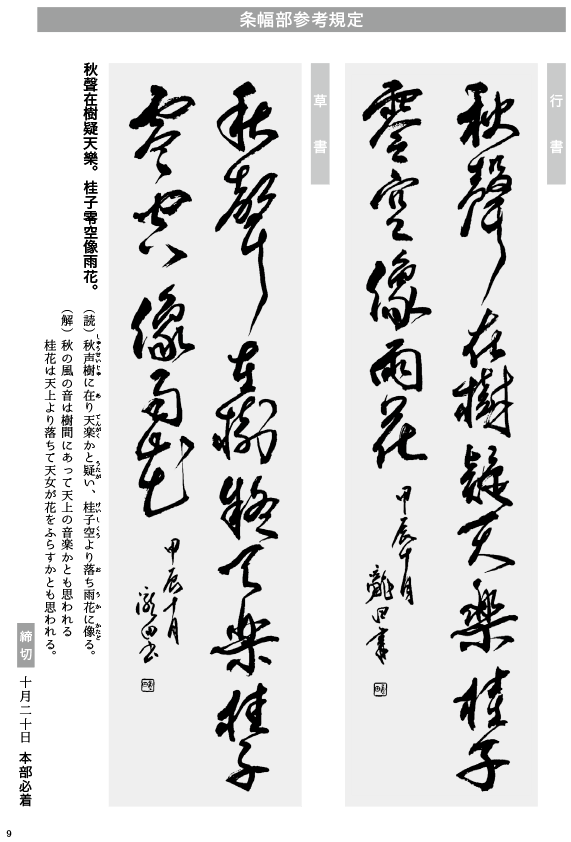 条幅部参考規定
行書
秋聲在樹疑天樂桂子
零空像雨花
甲辰十月
龍田書
草書
秋聲在樹疑天樂桂子
零空像雨花
甲辰十月
秋聲在樹疑天樂。桂子零空像雨花。
（読）秋声樹に在り天楽かと疑い、桂子空より落ち雨花に像る。
（解）秋の風の音は樹間にあって天上の音楽かとも思われる
桂花は天上より落ちて天女が花をふらすかとも思われる。
締切
十月二十日 本部必着
9